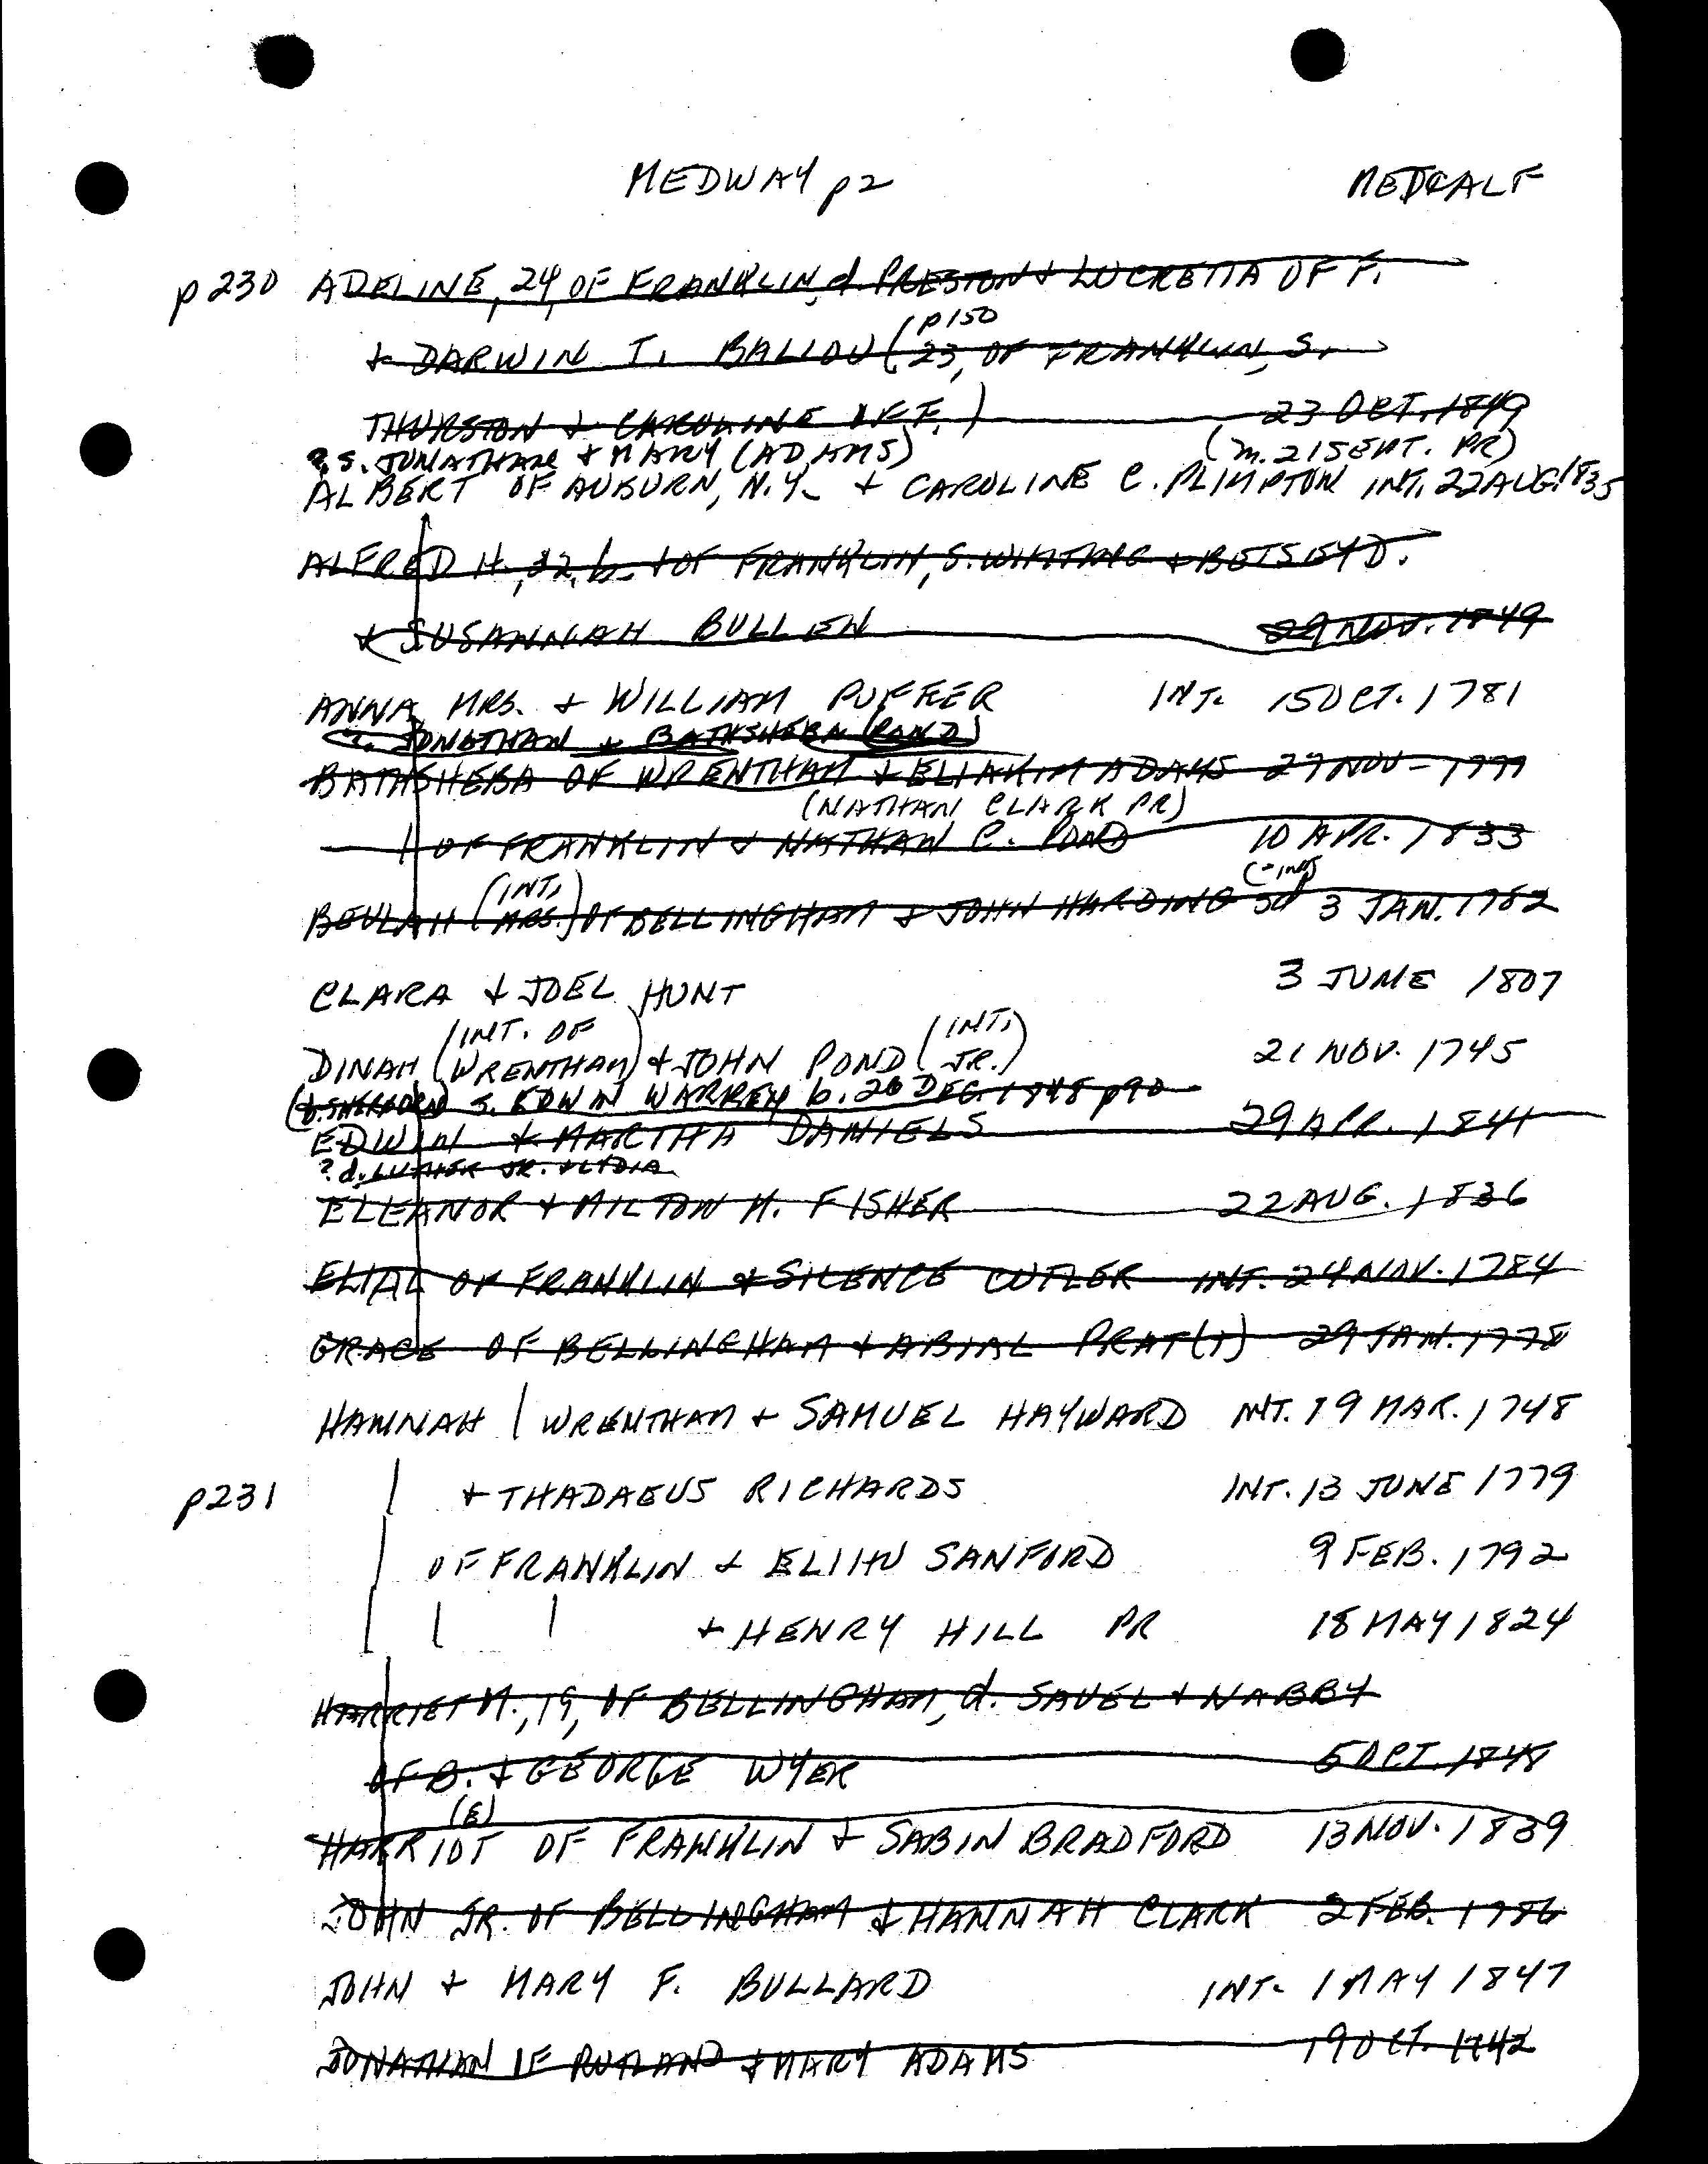 MEDWAY p2 MEDCALF
p230 ADELINE, 24, OF FRANKLIN, d. PRESTON + LUCRETIA OF F.
(p150
+ DARWIN T. BALLOU (23, OF FRANKLIN, S.
THURSTON + CAROLINE OF F.) 23 OCT. 1849
?, S. JONATHAN + MARY (ADAMS) (m. 21 SEPT. PR)
ALBERT OF AUBURN, N.Y. + CAROLINE C. PLIMPTON INT. 22 AUG. 1835
ALFRED H., 22, b. + OF FRANKLIN, S. WHITING + BETSEY D.
+ SUSANNAH BULLEN 29 NOV. 1849
ANNA, MRS. + WILLIAM PUFFER INT. 15 OCT. 1781
JONATHAN + BATHSHEBA (POND)
BATHSHEBA OF WRENTHAM + ELIAKIM ADAMS 27 NOV - 1777
(NATHAN CLARK PR)
— | OF FRANKLIN + NATHAN C. POND 10 APR. 1833
(INT. (- INT)
BEULAH (MRS.) OF BELLINGHAM + JOHN HARDING 3d 3 JAN. 1782
CLARA + JOEL HUNT 3 JUNE 1807
(INT. OF (INT.)
DINAH (WRENTHAM) + JOHN POND (JR.) 21 NOV. 1745
(b. SHERBORN) S. EDWIN WARREN b. 26 DEC. 1848 p90
EDWIN + MARTHA DANIELS 29 APR. 1841
? d. LUTHER JR. + LYDIA
ELEANOR + MILTON M. FISHER 22 AUG. 1836
ELIAL OF FRANKLIN + SILENCE CUTLER INT. 24 NOV. 1784
GRACE OF BELLINGHAM + ABIAL PRAT(T) 29 JAN. 1778
HANNAH | WRENTHAM + SAMUEL HAYWARD INT. 19 MAR. 1748
p231 | + THADAEUS RICHARDS INT. 13 JUNE 1779
| OF FRANKLIN + ELIHU SANFORD 9 FEB. 1792
| | | + HENRY HILL PR 18 MAY 1824
HARRIET M., 19, OF BELLINGHAM, d. SAVEL + NABBY
OF B. + GEORGE WYER 5 OCT. 1848
(E)
HARRIOT OF FRANKLIN + SABIN BRADFORD 13 NOV. 1839
JOHN JR. OF BELLINGHAM + HANNAH CLARK 2 FEB. 1786
JOHN + MARY F. BULLARD INT. 1 MAY 1847
JONATHAN OF RUTLAND + MARY ADAMS 19 OCT. 1742